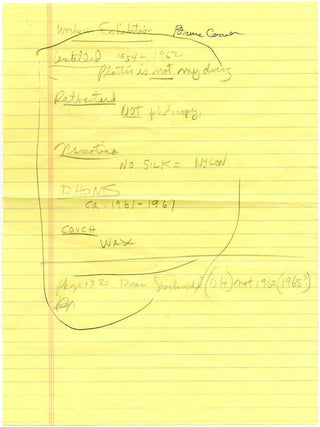 Works Exhibition Bruce Conner
Untitled 1954-1962
Plastic is not my doing
Ratbastard
NOT photocopy,
NO SILK = NYLON
DHONS
ca. 1961-1967
COUCH
WAX
Page 182 Dean Stockwell (DH) not 1962 (1965?)